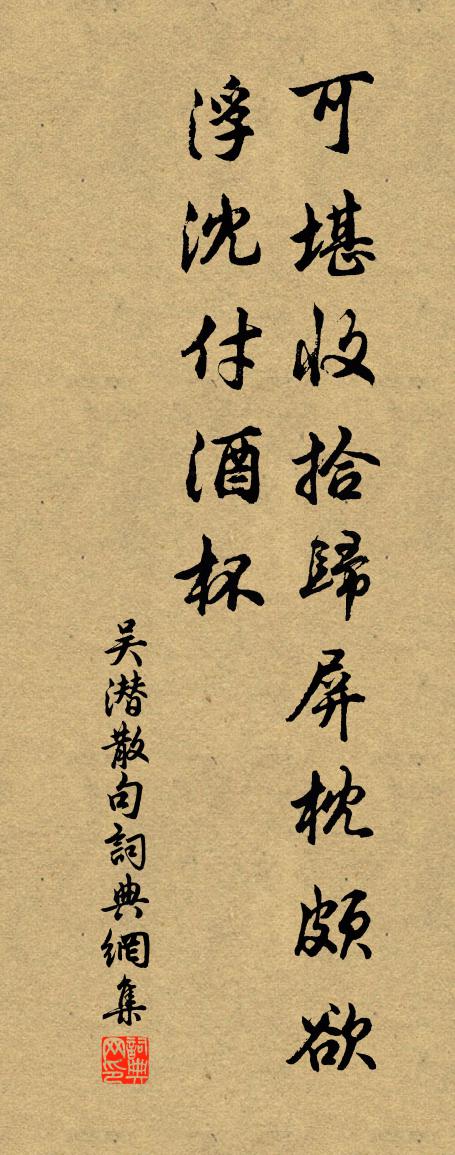 可堪收拾歸屏枕頗欲
浮沈付酒杯
吴潜散句詞典網集
詞典网印